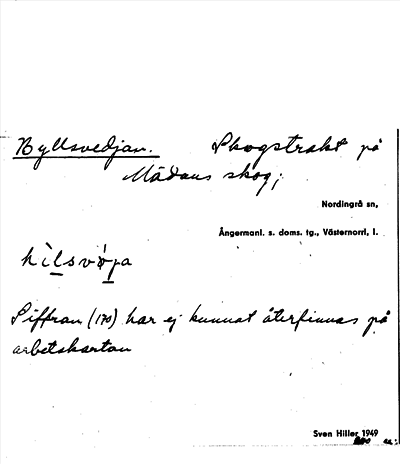 Byllsvedjan. Skogstrakt på
Mädans skog;
Nordingrå sn,
Ångermanl. s. doms. tg., Västernorrl, l.
Siffran (170) har ej kunnat återfinnas på
arbetskartan
Sven Hiller 1949